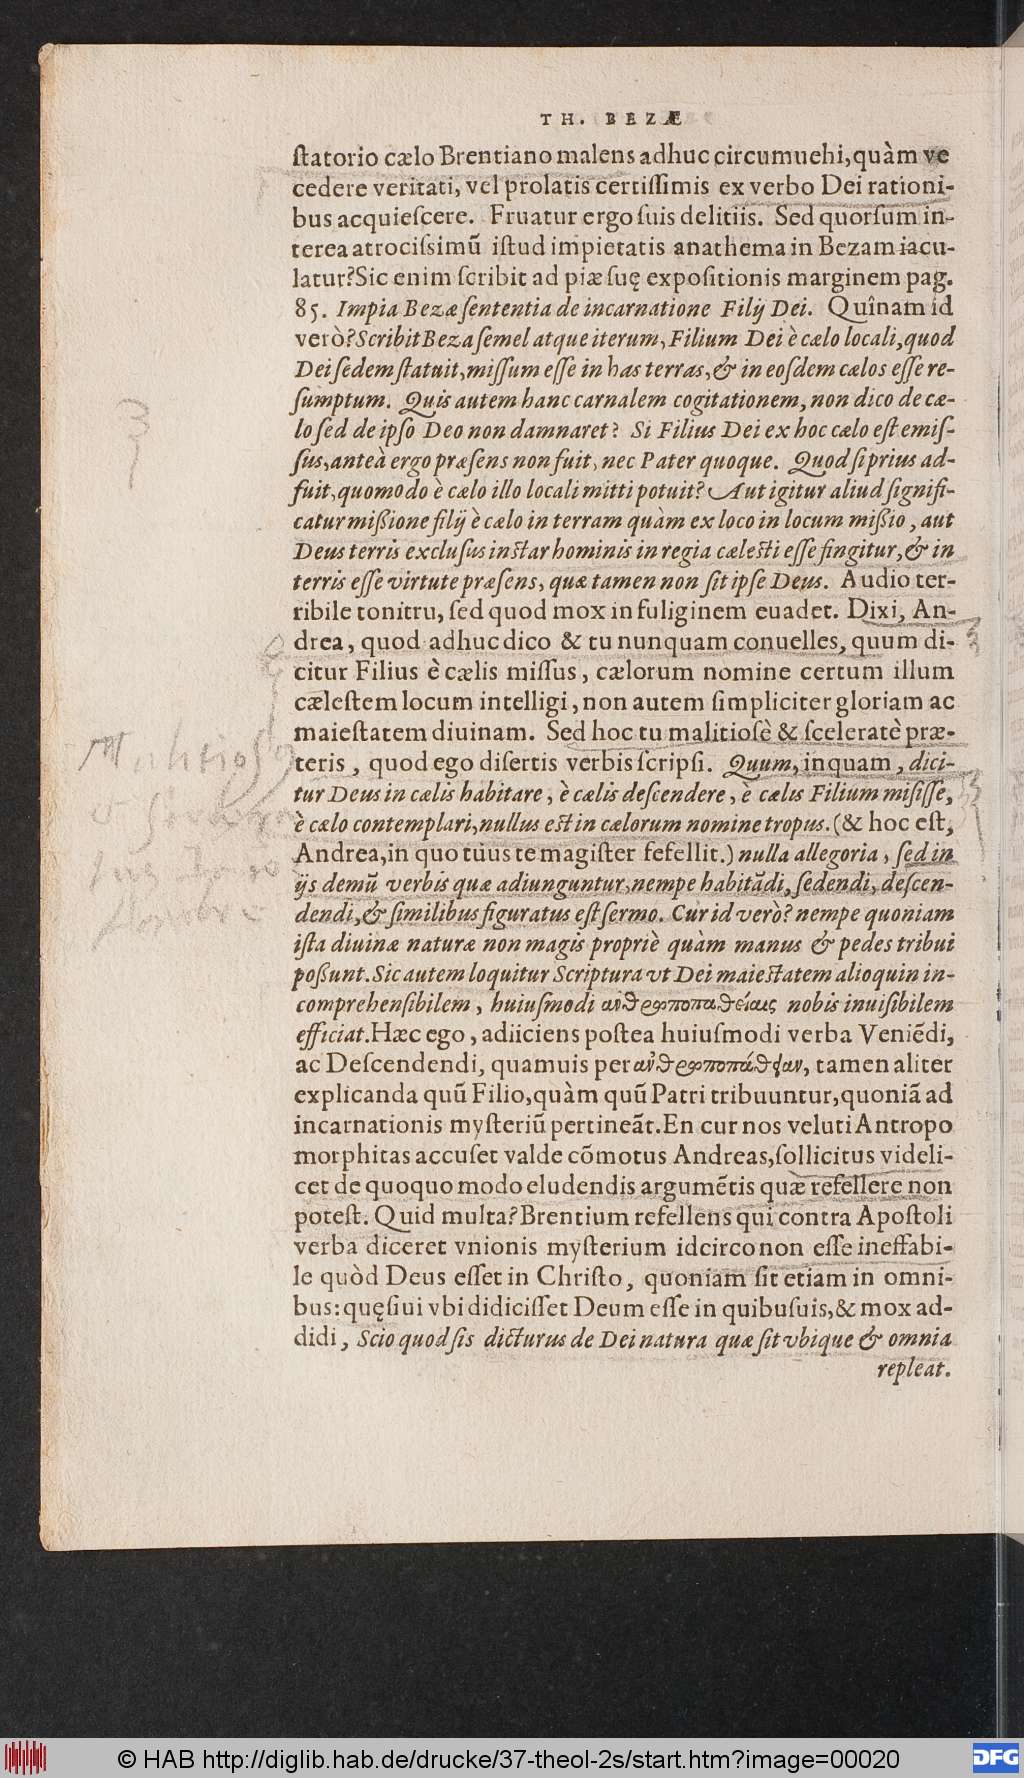 TH. BEZÆ
ſtatorio cælo Brentiano malens adhuc circumuehi, quàm ve
cedere veritati, vel prolatis certiſſimis ex verbo Dei rationi-
bus acquieſcere. Fruatur ergo ſuis delitiis. Sed quorſum in-
terea atrociſsimũ iſtud impietatis anathema in Bezam iacu-
latur? Sic enim ſcribit ad piæ ſuę expoſitionis marginem pag.
85. Impia Bezæ ſententia de incarnatione Filij Dei. Quînam id
verò? Scribit Beza ſemel atque iterum, Filium Dei è cælo locali, quod
Dei ſedem ſtatuit, miſſum eſſe in has terras, & in eoſdem cælos eſſe re-
ſumptum. Quis autem hanc carnalem cogitationem, non dico de cæ-
lo ſed de ipſo Deo non damnaret? Si Filius Dei ex hoc cælo eſt emiſ-
ſus, anteà ergo præſens non fuit, nec Pater quoque. Quod ſi prius ad-
fuit, quomodo è cælo illo locali mitti potuit? Aut igitur aliud ſignifi-
catur mißione filij è cælo in terram quàm ex loco in locum mißio, aut
Deus terris excluſus inſtar hominis in regia cæleſti eſſe fingitur, & in
terris eſſe virtute præſens, quæ tamen non ſit ipſe Deus. Audio ter-
ribile tonitru, ſed quod mox in fuliginem euadet. Dixi, An-
drea, quod adhuc dico & tu nunquam conuelles, quum di-
citur Filius è cælis miſſus, cælorum nomine certum illum
cæleſtem locum intelligi, non autem ſimpliciter gloriam ac
maieſtatem diuinam. Sed hoc tu malitiosè & ſceleratè præ-
teris, quod ego diſertis verbis ſcripſi. Quum, inquam, dici-
tur Deus in cælis habitare, è cælis deſcendere, è cælis Filium miſiſſe,
è cælo contemplari, nullus eſt in cælorum nomine tropus. (& hoc eſt,
Andrea, in quo tuus te magiſter fefellit.) nulla allegoria, ſed in
ijs demũ verbis quæ adiunguntur, nempe habitãdi, ſedendi, deſcen-
dendi, & ſimilibus figuratus eſt ſermo. Cur id verò? nempe quoniam
iſta diuinæ naturæ non magis propriè quàm manus & pedes tribui
poßunt. Sic autem loquitur Scriptura vt Dei maieſtatem alioquin in-
comprehenſibilem, huiuſmodi ανθρωποπαθείαις nobis inuiſibilem
efficiat. Hæc ego, adiiciens poſtea huiuſmodi verba Veniẽdi,
ac Deſcendendi, quamuis per ανθρωποπάθειαν, tamen aliter
explicanda quũ Filio, quàm quũ Patri tribuuntur, quoniã ad
incarnationis myſteriũ pertineãt. En cur nos veluti Antropo
morphitas accuſet valde cõmotus Andreas, ſollicitus videli-
cet de quoquo modo eludendis argumẽtis quæ refellere non
poteſt. Quid multa? Brentium refellens qui contra Apoſtoli
verba diceret vnionis myſterium idcirco non eſſe ineffabi-
le quòd Deus eſſet in Chriſto, quoniam ſit etiam in omni-
bus: quęſiui vbi didiciſſet Deum eſſe in quibuſuis, & mox ad-
didi, Scio quod ſis dicturus de Dei natura quæ ſit vbique & omnia
repleat.
© HAB http://diglib.hab.de/drucke/37-theol-2s/start.htm?image=00020
DFG